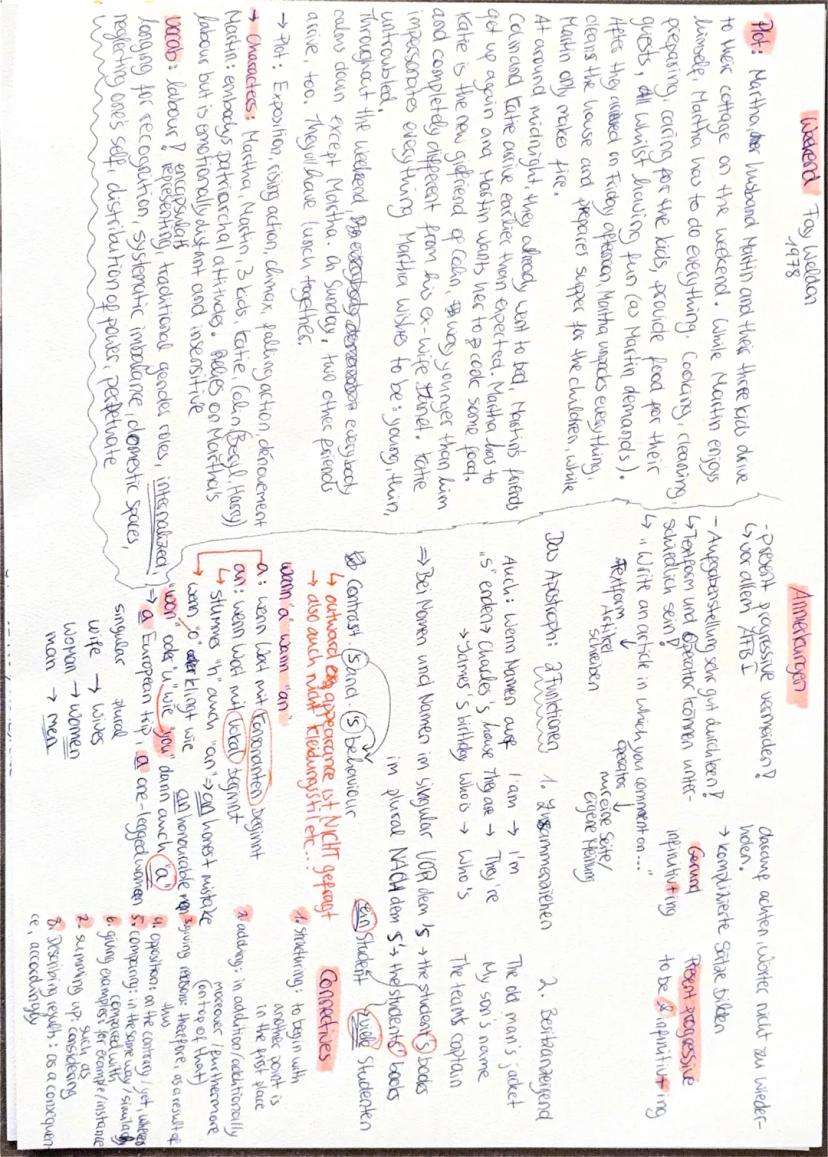 Weekend Fay Weldon
1978
Plot: Martha, her husband Martin and their three kids drive
to their cottage on the weekend. While Martin enjoys
himself, Martha has to do everything. Cooking, cleaning,
preparing, caring for the kids, provide food for their
guests, all whilst having fun (as Martin demands).
After they arrived on Friday afternoon, Martha unpacks everything,
cleans the house and prepares supper for the children, while
Martin only makes fire.
At around midnight, they already went to bed, Martin's friends
Colin and Katie arrive earlier than expected, Martha has to
get up again and Martin wants her to cook some food.
Katie is the new girlfriend of Colin, way younger than him
and completely different from his ex-wife Janet. Katie
impersonates everything Martha wishes to be: young, thin,
untroubled.
Throughout the weekend, everybody
calms down except Martha. On Sunday, two other friends
arrive, too. They all have lunch together.
→ Plot: Exposition, rising action, climax, falling action, denouement
→ Characters: Martha, Martin, 3 kids, Katie, Colin (Beryl, Harry)
Martin: embodys patriarchal attitudes. Relies on Martha's
labour but is emotionally distant and insensitive
Vocab: labour! encapsulate
representing, traditional gender roles, internalized,
longing for recognition, systematic imbalance, domestic spaces,
neglecting one's self, distribution of power, perpetuate
Anmerkungen
- present progressive vermeiden!
↳ vor allem AFB I
- Aufgabenstellung sehr gut durchlesen!
↳ Textform und Operator können unter-
schiedlich sein!
↳ "Write an article in which you comment on..."
Textform ↓ Operator ↓
Artikel schreiben
nur eine Seite/
eigene Meinung
darauf achten, Wörter nicht zu wieder-
holen.
→ komplizierte Sätze bilden
Gerund Present progressive
infinitiv+ing to be & infinitiv+ing
Das Apostroph: 2 Funktionen 1. Zusammenziehen 2. Besitzanzeigend
Auch: Wenn Namen auf I am → I'm The old man's jacket
"s" enden → Charles's house They are → They're My son's name
→ James's birthday Who is → Who's The team's captain
⇒ Bei Nomen und Namen im singular VOR dem 's → the student's books
im plural NACH dem s' → the students' books
ein Student viele Studenten
Contrast 's and s' behaviour
↳ outward appearance ist NICHT gefragt
→ also auch nicht Kleidungsstil etc...
wann "a" wann "an"
a: wenn Wort mit Konsonanten beginnt
an: wenn Wort mit Vokal beginnt
↳ stummes "h" auch "an" ⇒ an honest mistake
an honourable man
wenn "o" klingt wie
"won" oder "u" wie "you" dann auch "a"
⇒ a European trip, a one-legged women
singular plural
wife → wives
woman → women
man → men
Connectives
1. structuring: to begin with
another point is
in the first place
2. adding: in addition/additionally
moreover/furthermore
(on top of that)
3. giving reasons: therefore, as a result of
thus
4. opposition: on the contrary/yet, whereas
5. comparing: in the same way/similarly
compared with
6. giving examples: for example/instance
such as
7. summing up: considering
8. Describing results: as a consequen-
ce, accordingly